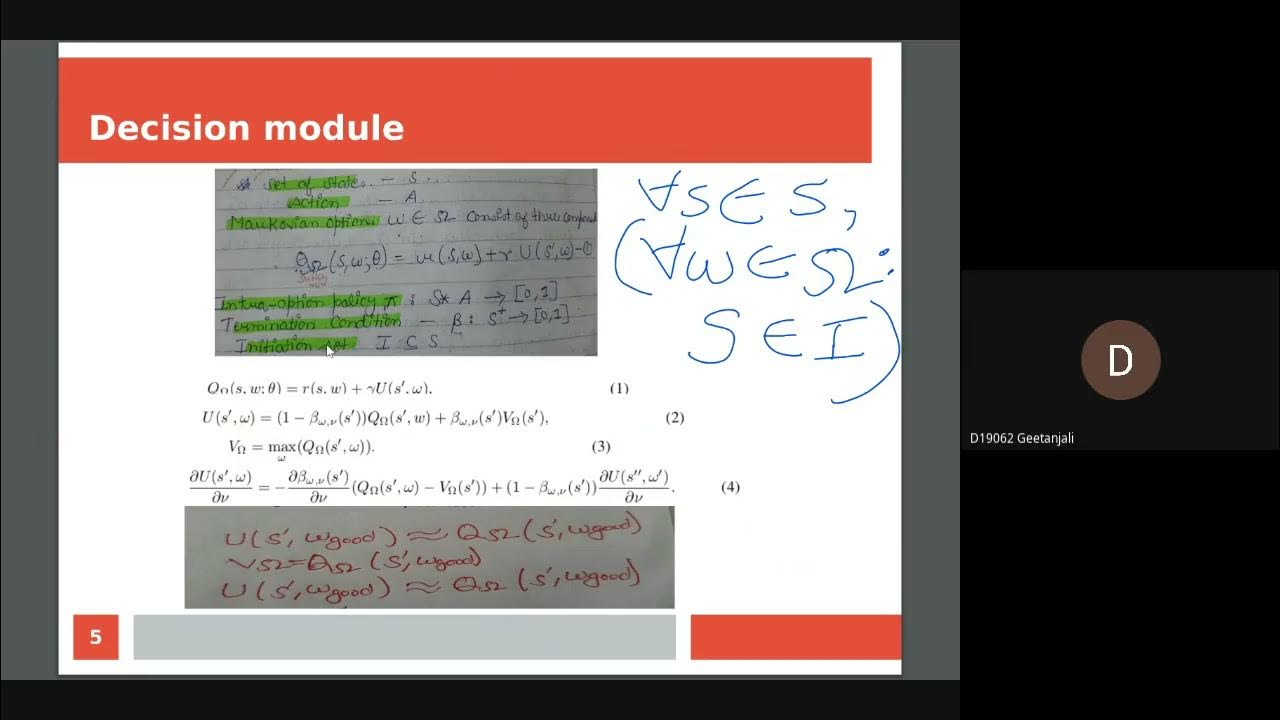 Decision module
set of states - S
action - A
Markovian options ω ∈ Ω consist of three
Q_Ω(s, ω; θ) = r(s, ω) + γ U(s', ω) - ①
Intra-option policy π : S* A → [0,1]
Termination Condition - β : S⁺ → [0,1]
Initiation set I ⊆ S
∀S ∈ S,
(∀ω ∈ Ω:
S ∈ I)
Q_Ω(s, w; θ) = r(s, w) + γU(s', ω), (1)
U(s', ω) = (1 − β_{ω,ν}(s'))Q_Ω(s', w) + β_{ω,ν}(s')V_Ω(s'), (2)
V_Ω = max_ω(Q_Ω(s', ω)). (3)
∂U(s', ω)/∂ν = −∂β_{ω,ν}(s')/∂ν (Q_Ω(s', ω) − V_Ω(s')) + (1 − β_{ω,ν}(s')) ∂U(s'', ω')/∂ν. (4)
U(s', ωgood) ≈ QΩ(s', ωgood)
VΩ = QΩ(s', ωgood)
U(s', ωgood) ≈ QΩ(s', ωgood)
5
D
D19062 Geetanjali